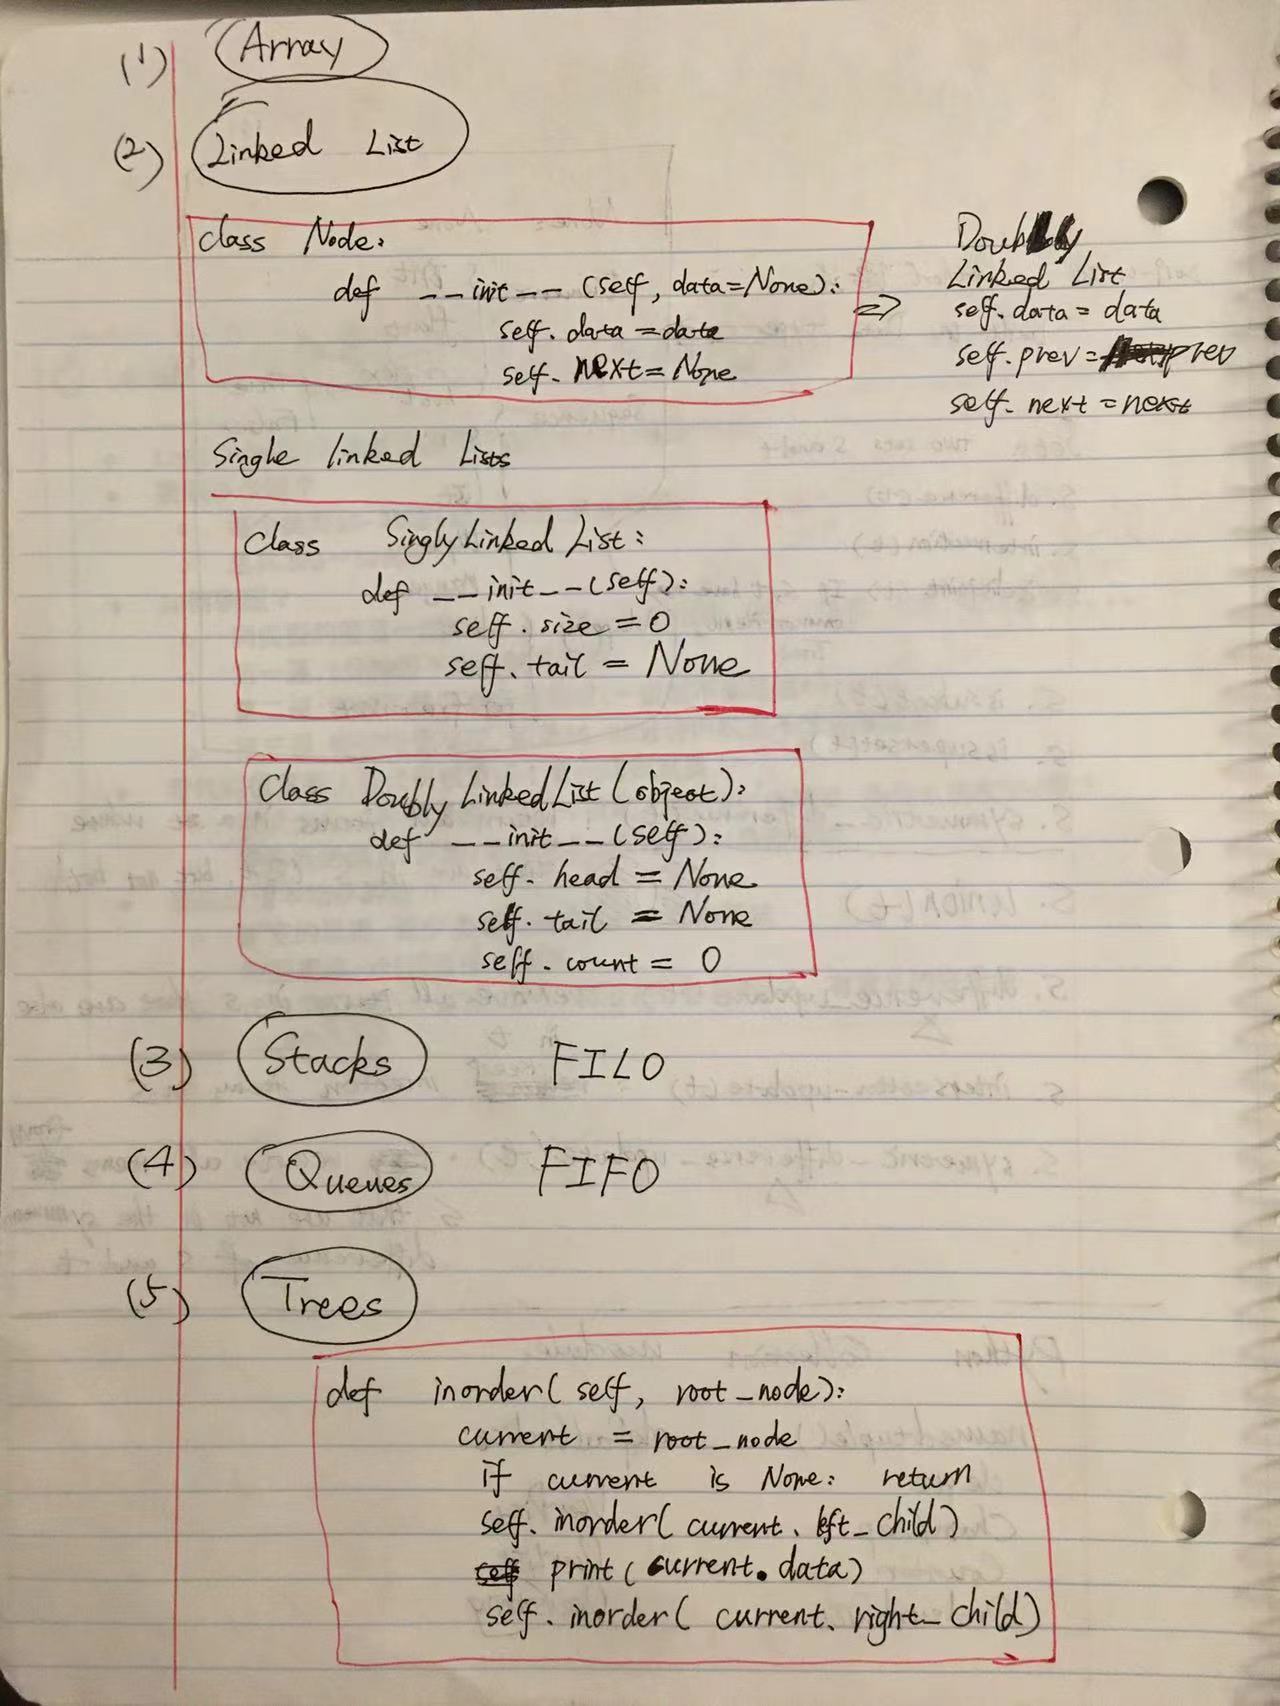 (1) Array
(2) Linked List
class Node:
def __init__ (self, data=None):
self. data = data
self. next = None
⇒ Doubly
Linked List
self. data = data
self. prev = prev
self. next = next
Single linked Lists
class SinglyLinked List:
def __init__(self):
self. size = 0
self. tail = None
Class Doubly LinkedList (object):
def __init__(self):
self. head = None
self. tail = None
self. count = 0
(3) Stacks FILO
(4) Queues FIFO
(5) Trees
def inorder( self, root_node):
current = root_node
if current is None: return
self. inorder( current. left_child)
print( current. data)
self. inorder( current. right_child)